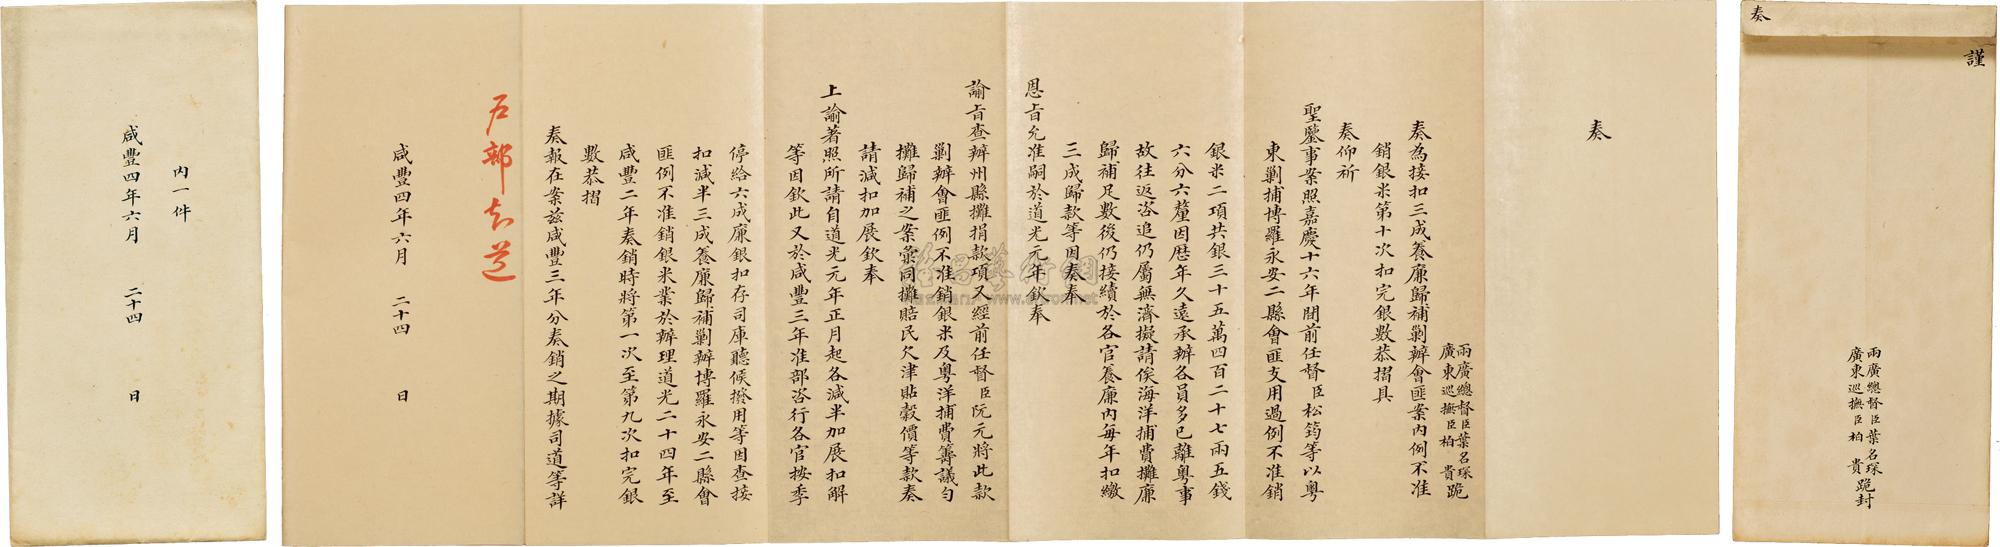 謹
奏
兩廣總督臣葉名琛
廣東巡撫臣柏貴跪封
奏
兩廣總督臣葉名琛
廣東巡撫臣柏貴跪
奏為接扣三成養廉歸補剿辦會匪案內例不准
銷銀米第十次扣完銀數恭摺具
奏仰祈
聖鑒事案照嘉慶十六年間前任督臣松筠等以粵
東剿捕博羅永安二縣會匪支用過例不准銷
銀米二項共銀三十五萬四百二十七兩五錢
六分六釐因歷年久遠承辦各員多已離粵事
故往返咨追仍屬無濟擬請俟海洋捕費攤廉
歸補足數後仍接續於各官養廉內每年扣繳
三成歸款等因奏奉
恩旨允准嗣於道光元年欽奉
諭旨查辦州縣攤捐款項又經前任督臣阮元將此款
剿辦會匪例不准銷銀米及粵洋捕費籌議勻
攤歸補之案彙同攤賠民欠津貼穀價等款奏
請減扣加展欽奉
上諭著照所請自道光元年正月起各減半加展扣解
等因欽此又於咸豐三年准部咨行各官按季
停給六成廉銀扣存司庫聽候撥用等因查接
扣減半三成養廉歸補剿辦博羅永安二縣會
匪例不准銷銀米業於辦理道光二十四年至
咸豐二年奏銷時將第一次至第九次扣完銀
數恭摺
奏報在案茲咸豐三年分奏銷之期據司道等詳
户部知道
咸豐四年六月 二十四 日
內一件
咸豐四年六月 二十四 日